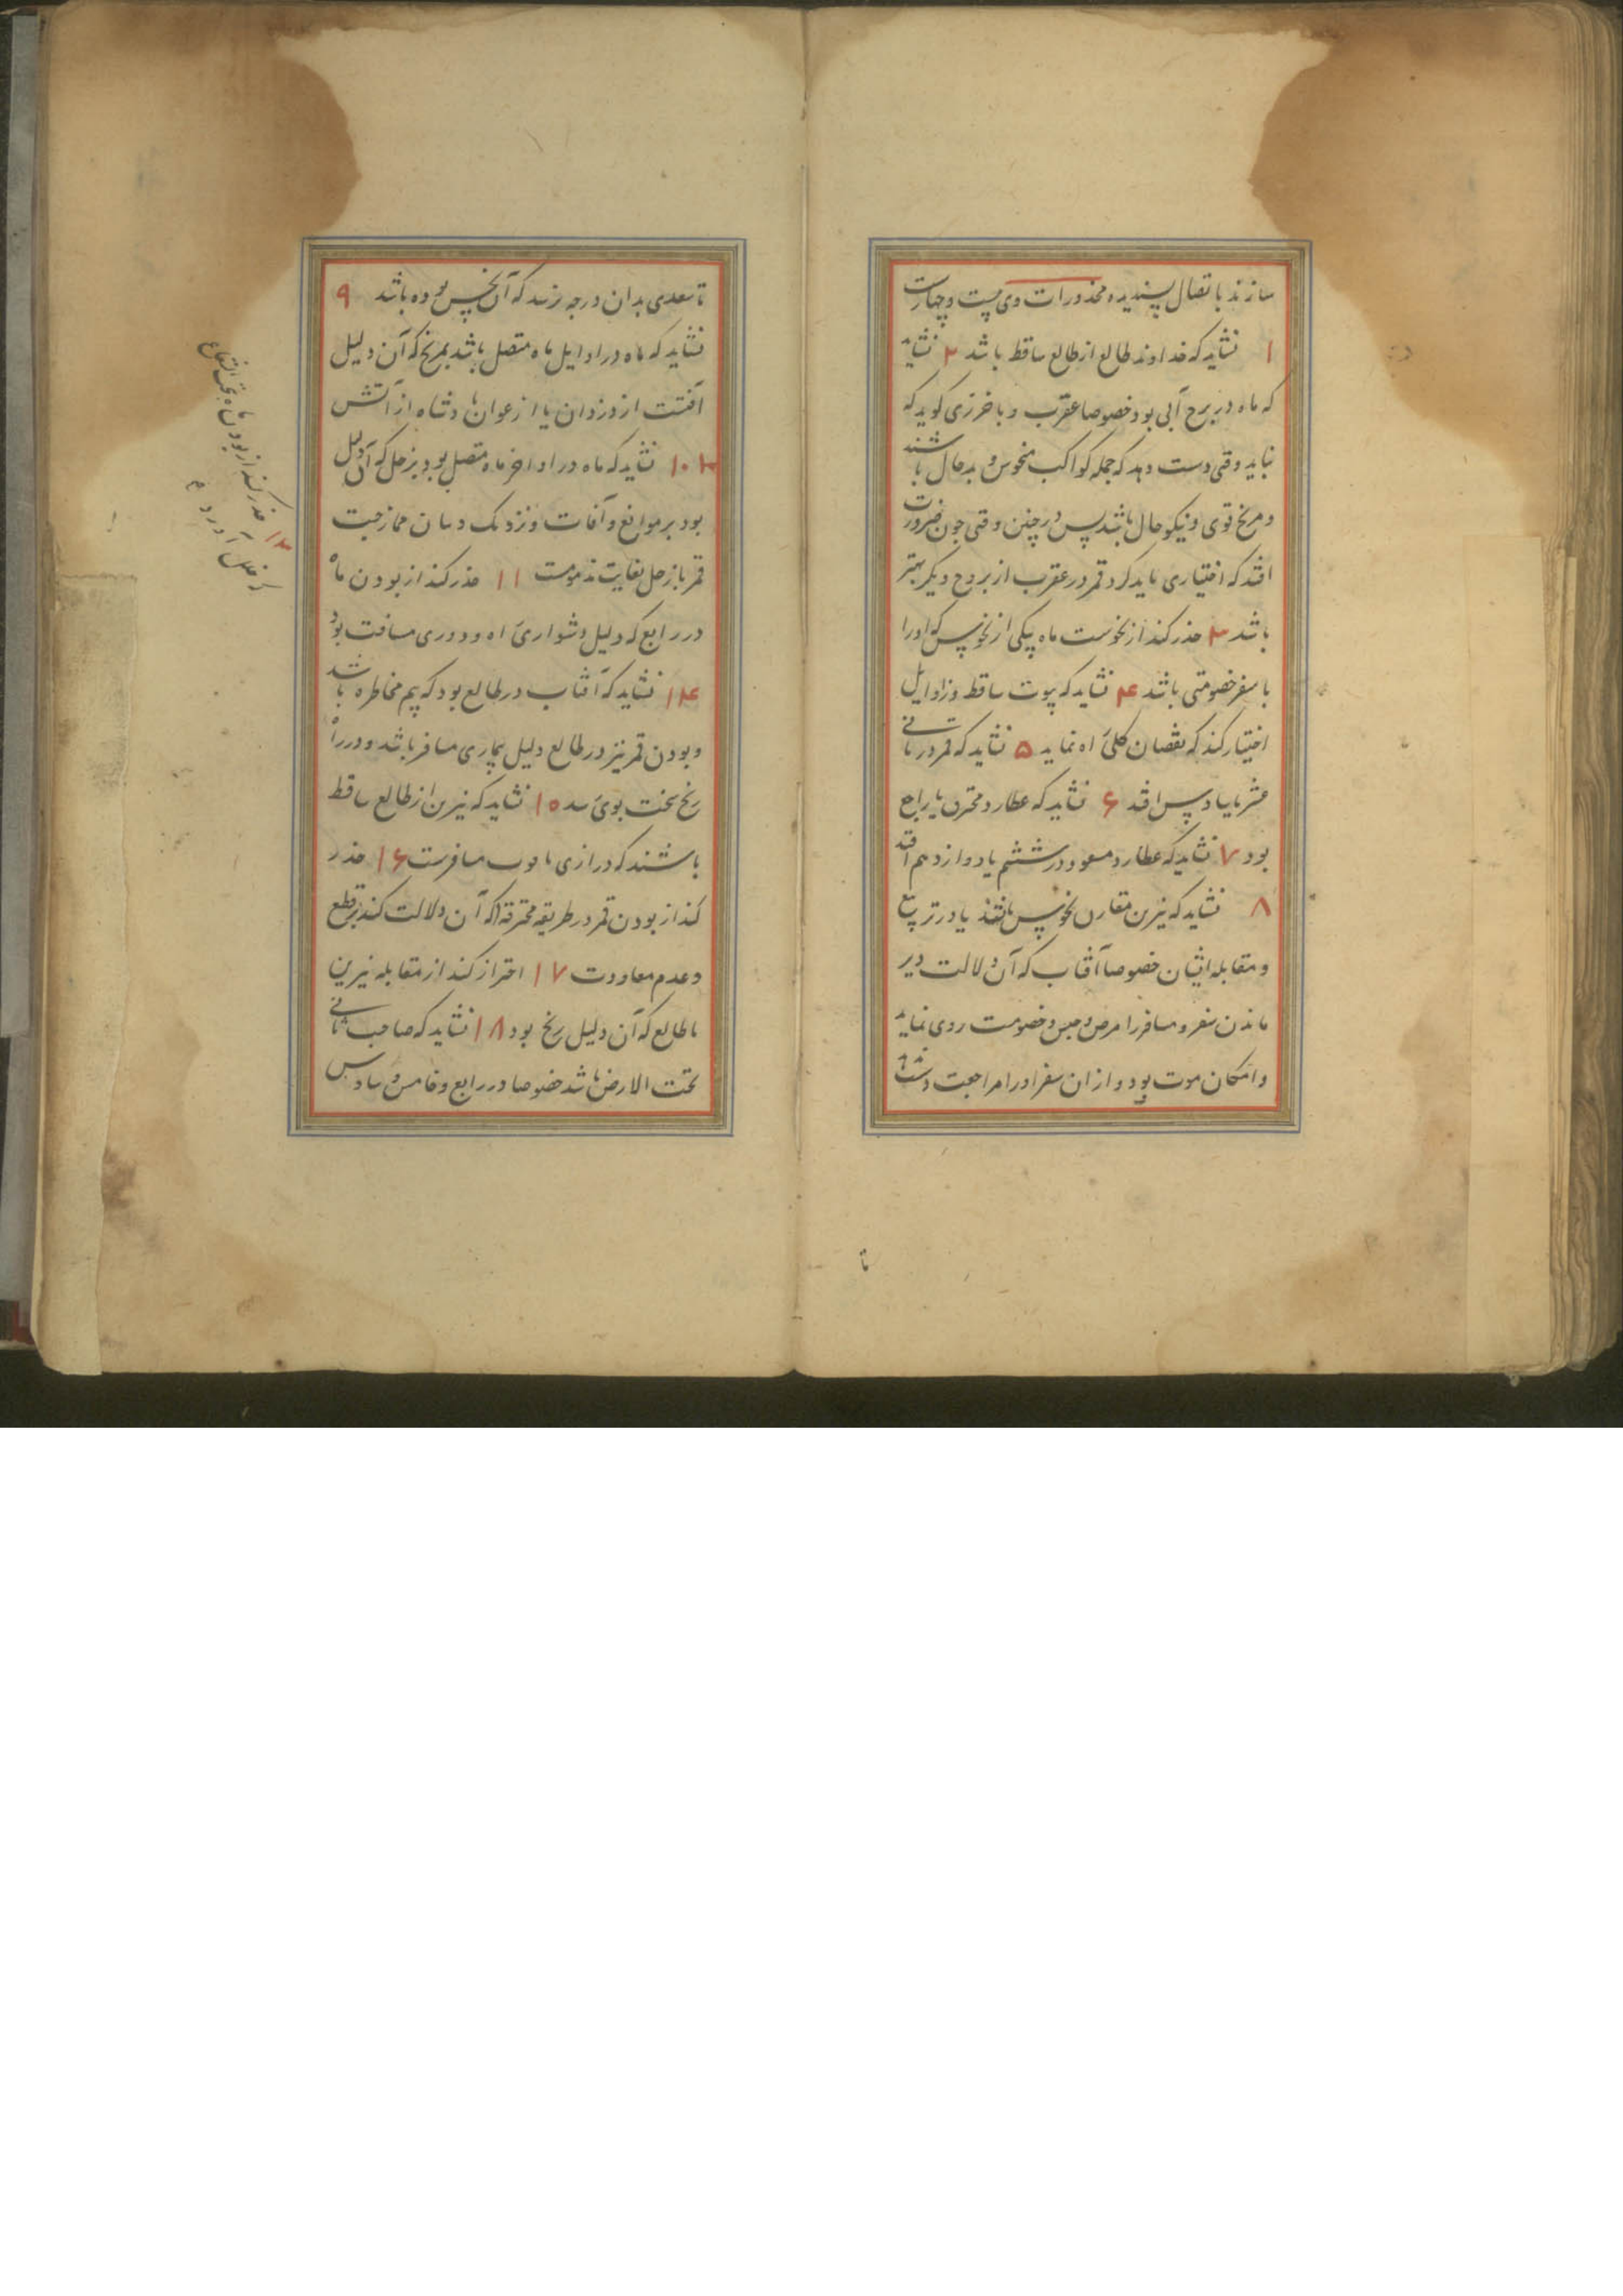 سازند باتصال پسندیده محذورات وی بیست و چهارست
۱ نشاید که خداوند طالع از طالع ساقط باشد ۲ نشاید
که ماه در برج آبی بود خصوصا عقرب و باخرزی کوید که
نباید وقتی دست دهد که جمله کواکب منحوس و بدحال باشند
و مریخ قوی و نیکو حال باشد پس در چنین وقتی چون ضرورت
افتد که اختیاری باید کرد قمر در عقرب از بروج دیکر بهتر
باشد ۳ حذر کند از نحوست ماه بیکی از نحوس که او را
با سفر خصومتی باشد ۴ نشاید که بیوت ساقط و زوایل
اختیار کند که نقصان کلی راه نماید ۵ نشاید که قمر در ثانی
عشر یا سادس افتد ۶ نشاید که عطارد محترق یا راجع
بود ۷ نشاید که عطارد و مسعود در ششم یا دوازدهم افتد
۸ نشاید که نیرین مقارن نحوس باشند یا در تربیع
و مقابله ایشان خصوصا آفتاب که آن دلالت دیر
ماندن سفر و مسافر را مرض و حبس و خصومت روی نماید
و امکان موت بود و از ان سفر او را مراجعت دست
تا
تا سعدی بدان درجه رسد که آن نحس بوده باشد ۹
نشاید که ماه در اوایل ماه متصل باشد بمریخ که آن دلیل
آفتست از دزدان یا از عوانان دشاه از آتش
۱۰ نشاید که ماه در اواخر ماه متصل بود بزحل که آن دلیل
بود بر موانع و آفات و نزدیک دسان ممازجت
قمر با زحل بغایت مذمومست ۱۱ حذر کند از بودن ماه
در رابع که دلیل دشواری راه و دوری مسافت بود
۱۴ نشاید که آفتاب در طالع بود که بیم مخاطره باشد
و بودن قمر نیز در طالع دلیل بیماری مسافر باشد و در راه
رنج سخت بوی رسد ۱۵ نشاید که نیرین از طالع ساقط
باشند که درازی مسافرست ۱۶ حذر
کند از بودن قمر در طریقه محترقه که آن دلالت کند بر قطع
و عدم معاودت ۱۷ احتراز کند از مقابله نیرین
با طالع که آن دلیل رنج بود ۱۸ نشاید که صاحب ثانی
تحت الارض باشد خصوصا در رابع و خامس و سادس
۱۳ حذر کند از بودن ماه تحت الشعاع
که خلل آورد